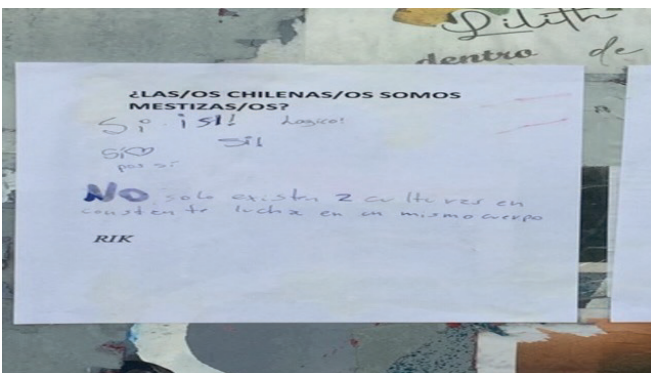 Lilith
dentro de
¿LAS/OS CHILENAS/OS SOMOS
MESTIZAS/OS?
Si ¡SI! Logico!
Si♡ Sil
pos si
NO solo existen 2 culturas en
constante lucha en un mismo cuerpo
RIK